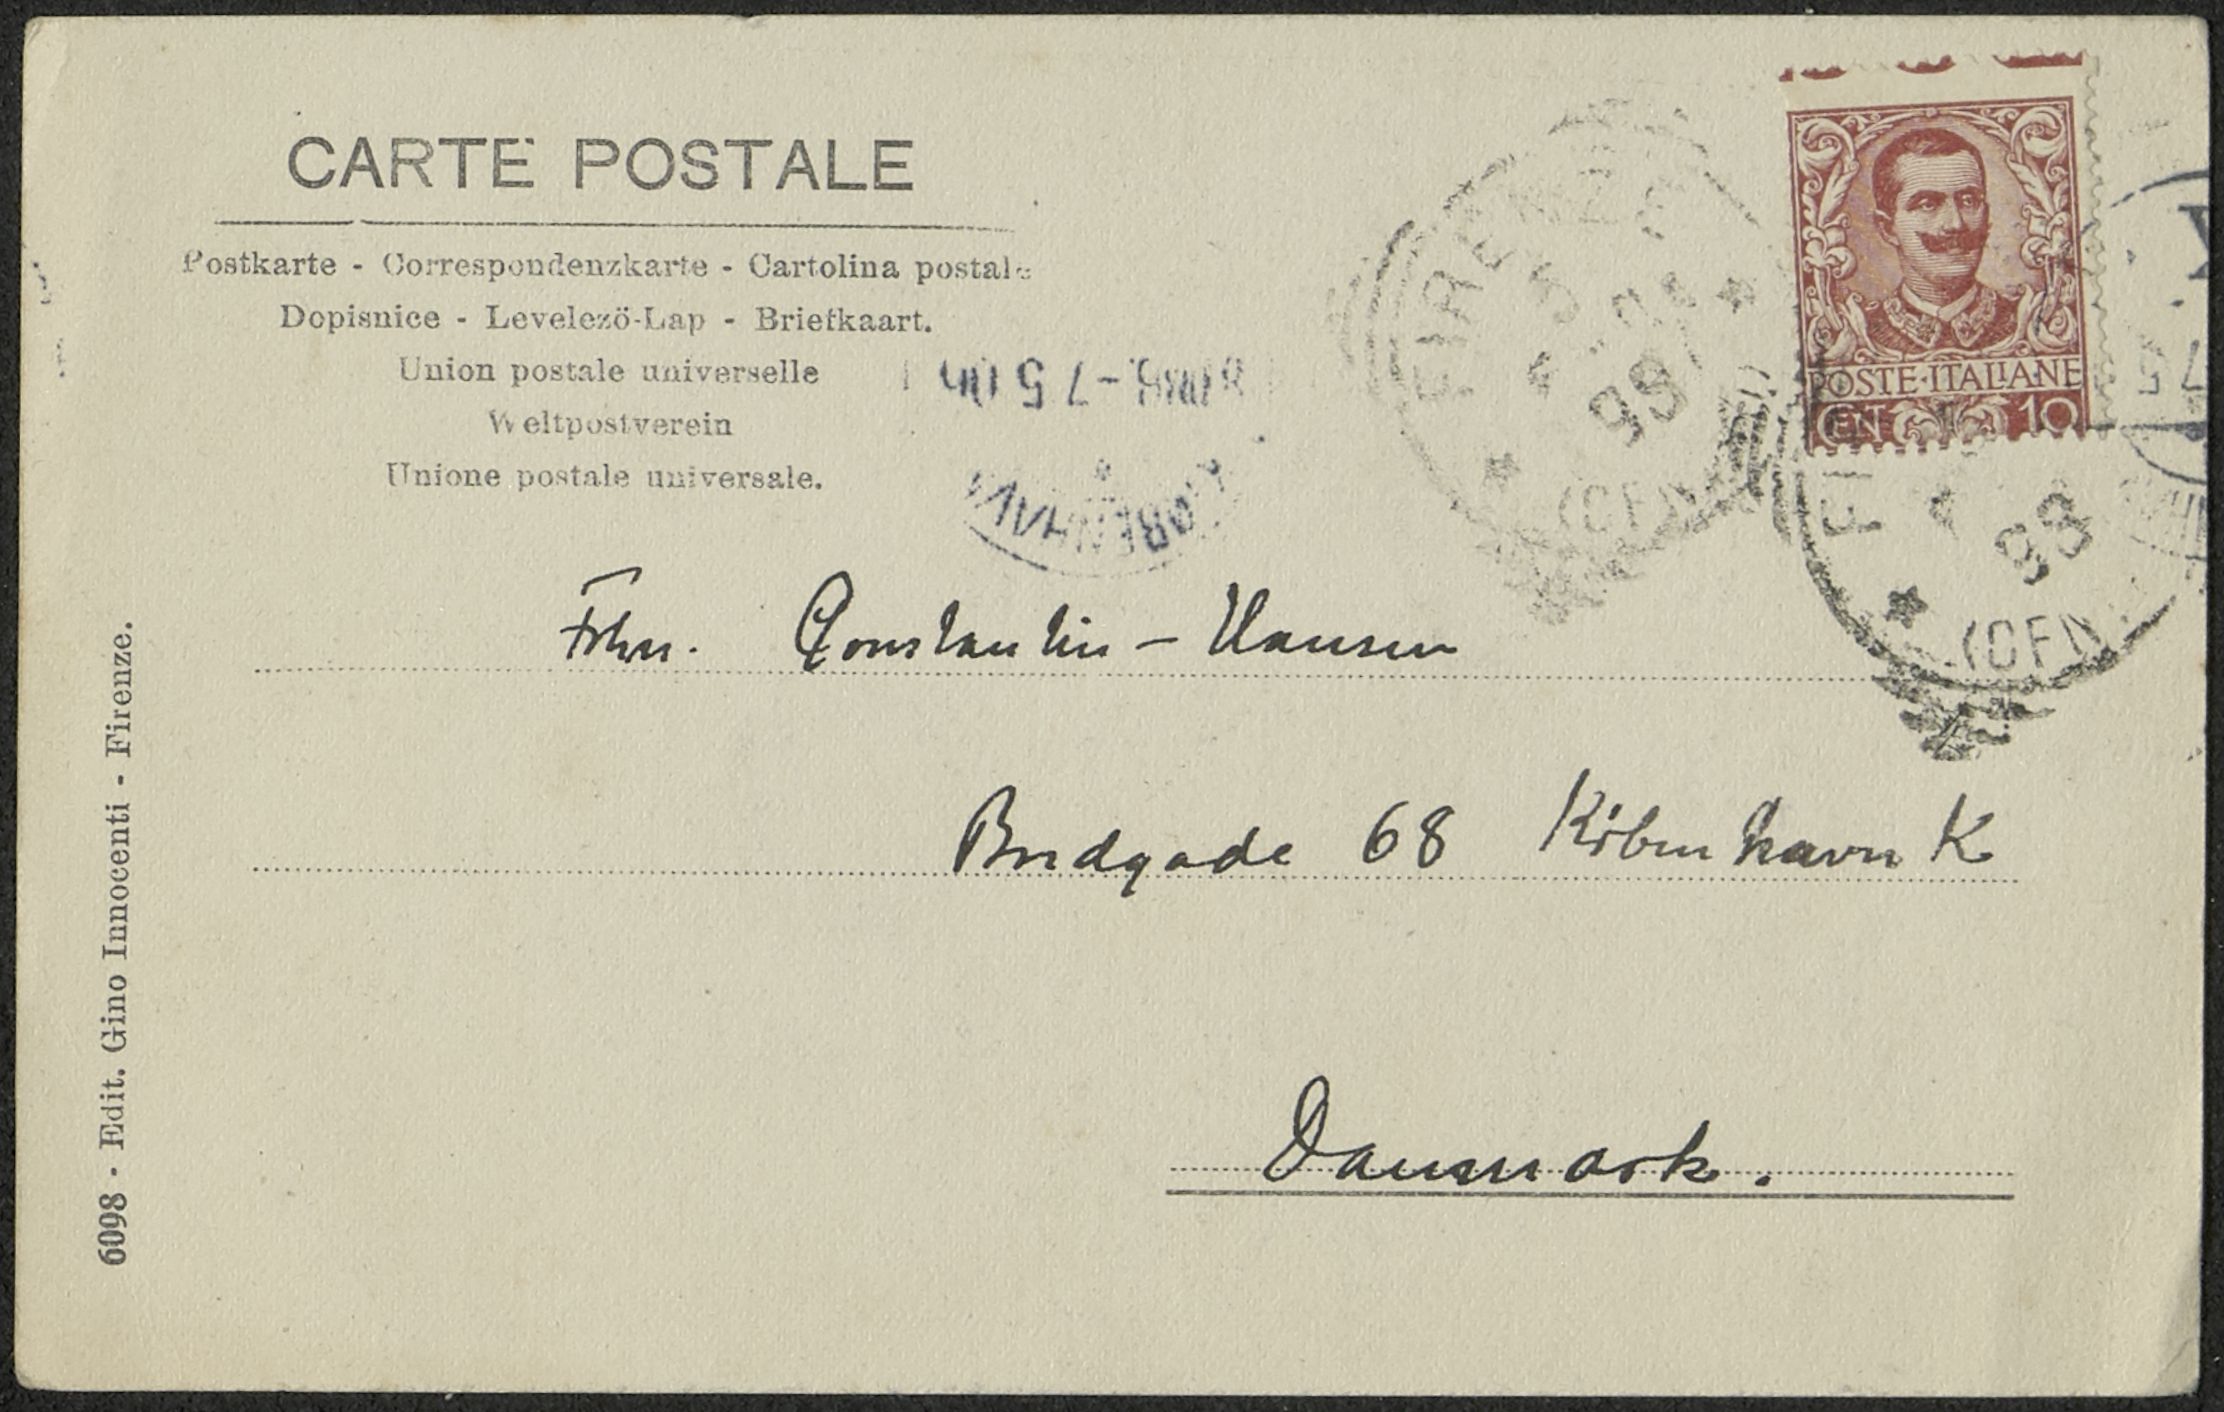 CARTE POSTALE
Postkarte - Correspondenzkarte - Cartolina postale
Dopisnice - Levelezö-Lap - Briefkaart.
Union postale universelle
Weltpostverein
Unione postale universale.
FIRENZE
KJØBENHAVN
POSTE·ITALIANE
CEN 10
Frkn. Constantin-Hansen
Bredgade 68 Köbenhavn K
Danmark.
6098 - Edit. Gino Innocenti - Firenze.